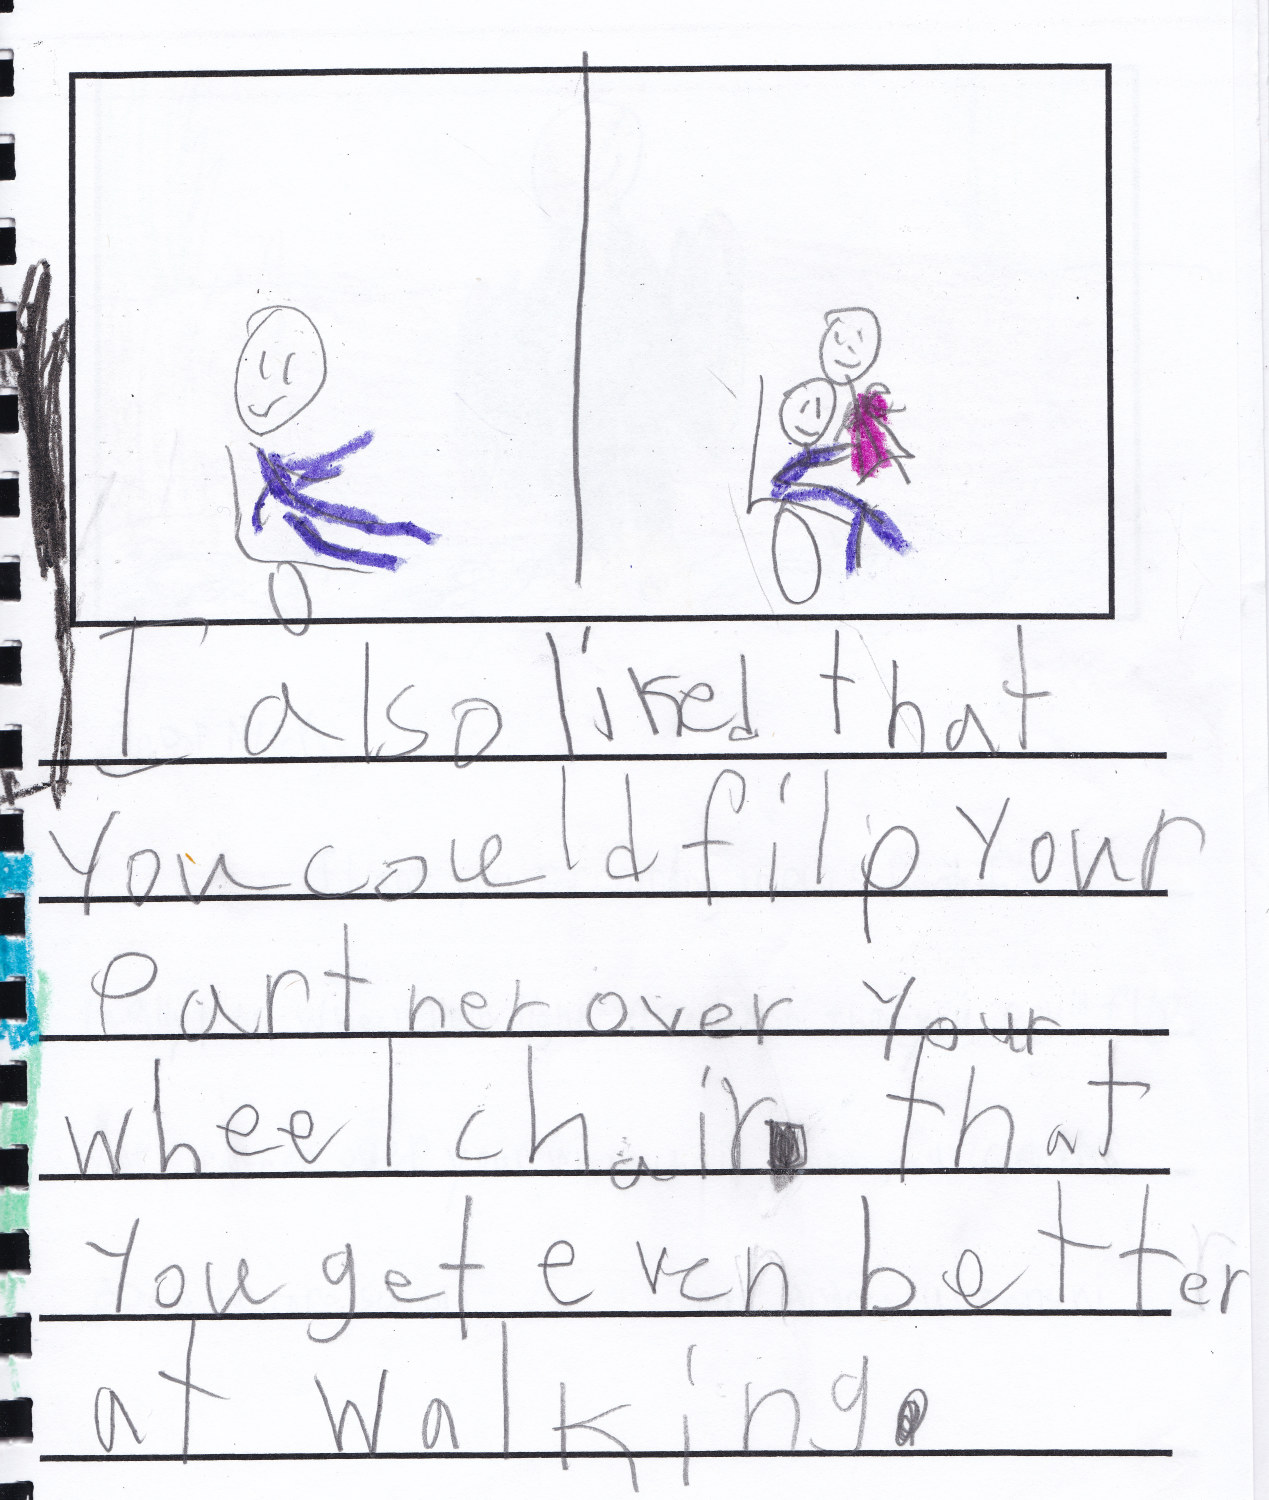 I also liked that
you could filp your
Partner over your
wheel chair that
you get even better
at walking.